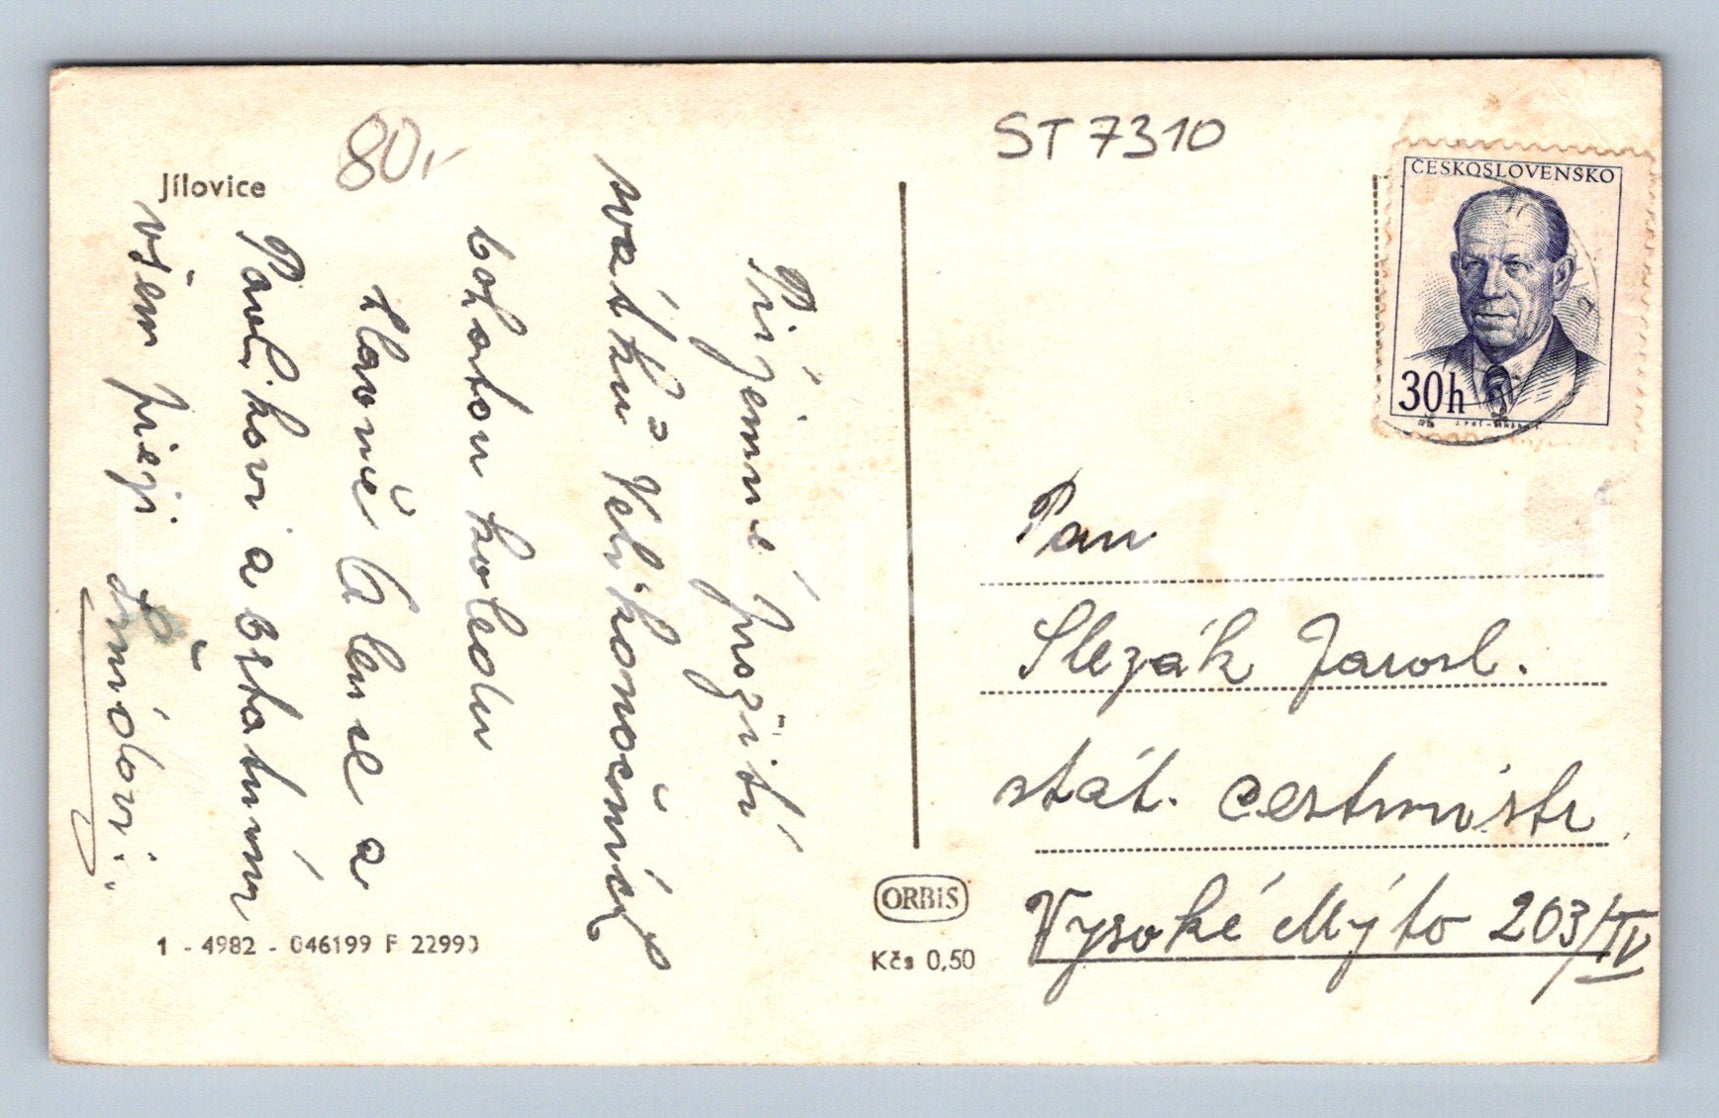 Jílovice
80,-
ST 7310
ČESKOSLOVENSKO
30h
Príjemné prožití
svátků Velikonočních
bohatou koledu
hlavně Alence a
Pavlíkovi a ostatním
všem přejí
Pan
Slezák Jarosl.
stát. cestmistr
Vysoké Mýto 203/IV
ORBIS
Kčs 0,50
1 - 4982 - 046199 F 22990